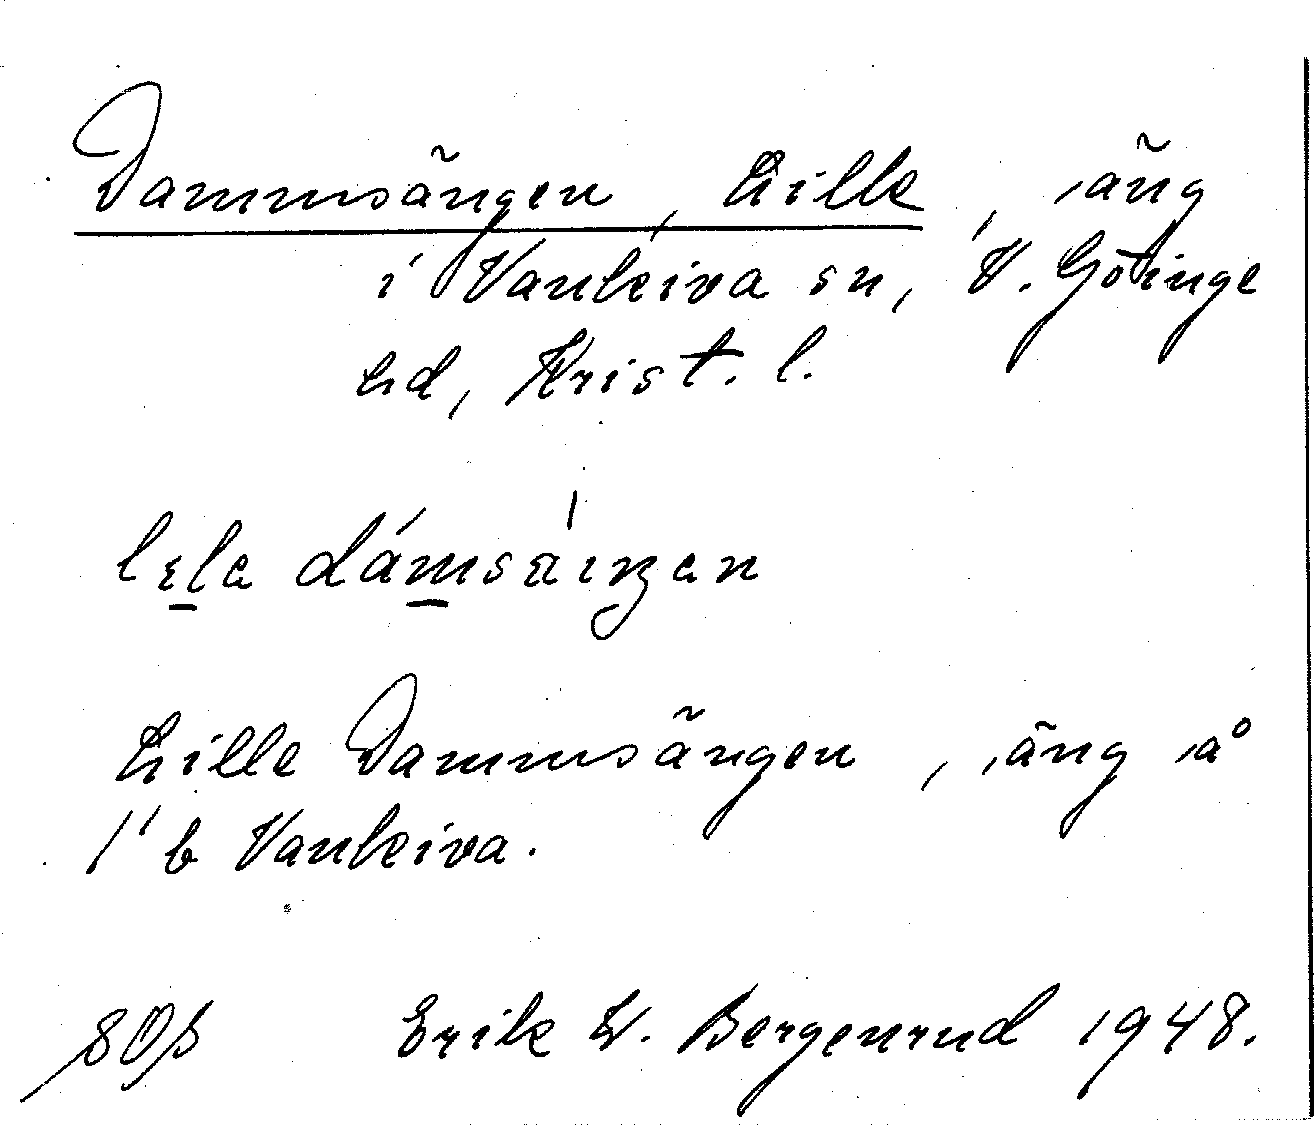 Dammsängen, Lille, äng
i Vankiva sn, V. Göinge
hd, Krist. l.
lɛla dámsäiŋan
Lille Dammsängen, äng å
1' b Vankiva.
Erik W. Bergenrud 1948.